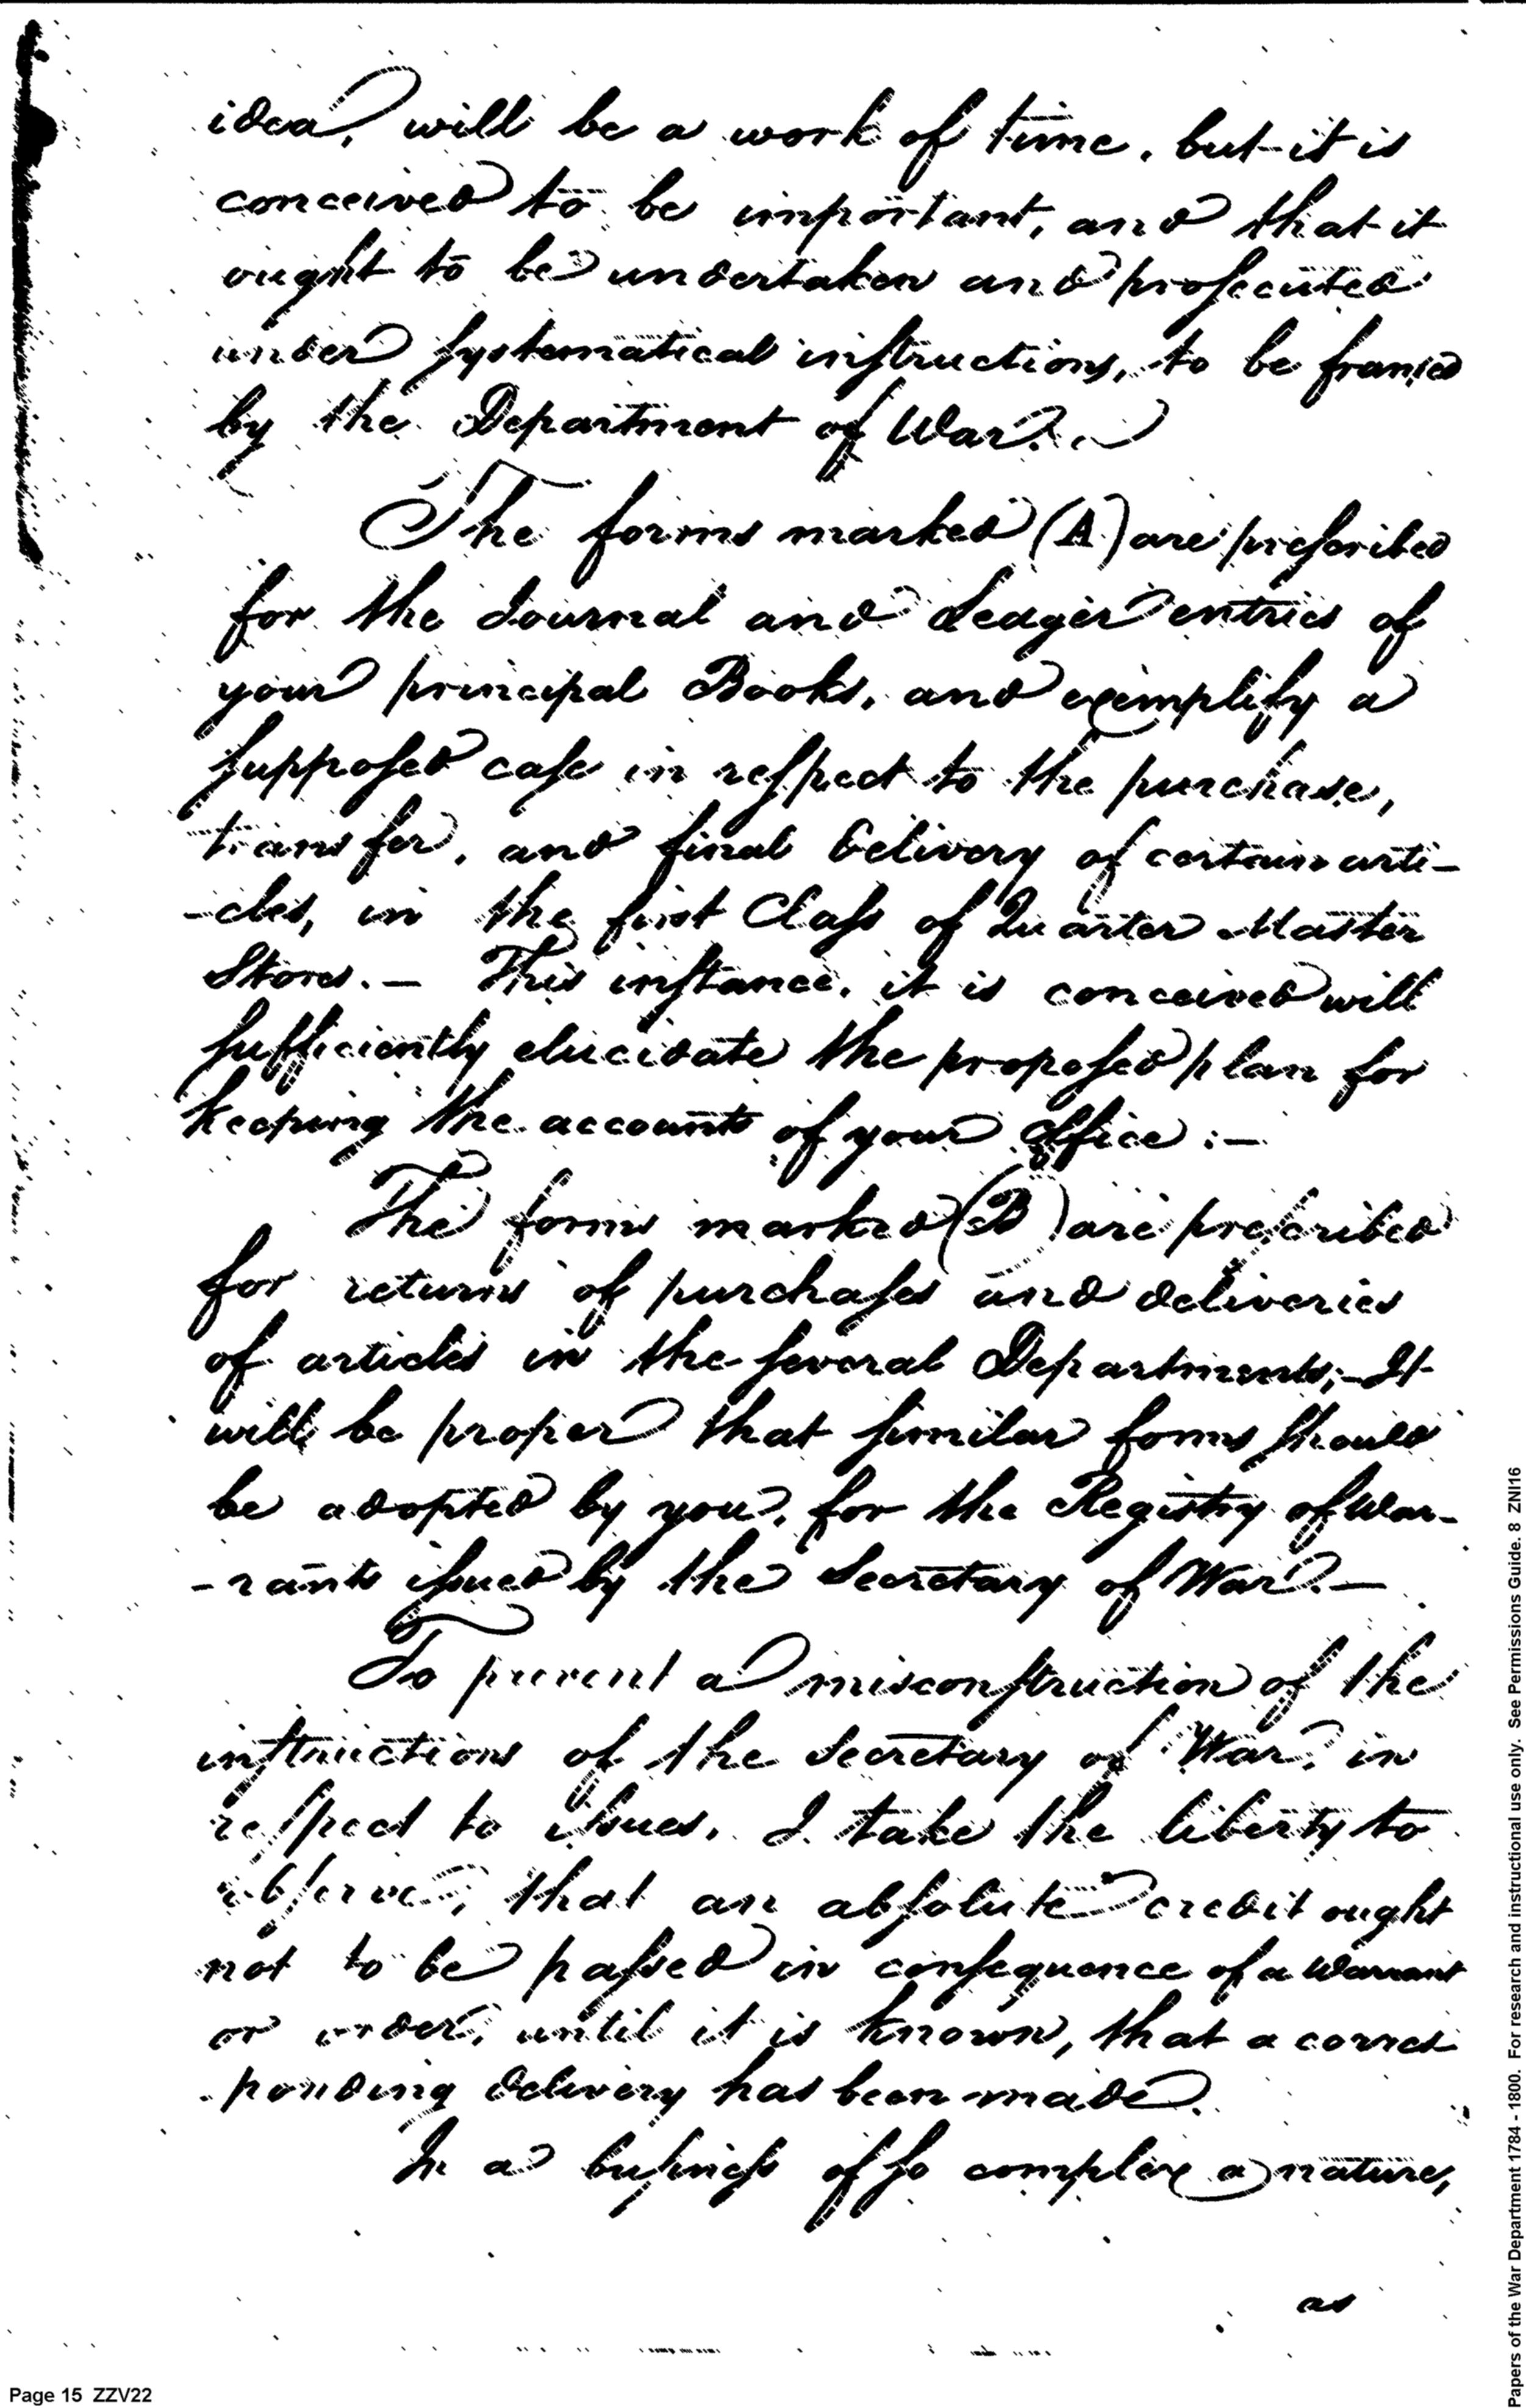 idea, will be a work of time, but it is
conceived to be important, and that it
ought to be undertaken and prosecuted
under systematical instructions, to be framed
by the Department of War.
The forms marked (A) are prescribed
for the Journal and Ledger entries of
your principal Books, and exemplify a
supposed case in respect to the purchase,
transfer, and final delivery of certain arti-
-cles, in the first Class of Quarter Master
Stores. — This instance, it is conceived will
sufficiently elucidate the proposed plan for
keeping the accounts of your office : —
The forms marked (B) are prescribed
for returns of purchases and deliveries
of articles in the several Departments; — It
will be proper that similar forms should
be adopted by you, for the Registry of War-
-rants issued by the Secretary of War. —
To prevent a misconstruction of the
instructions of the Secretary of War in
respect to issues, I take the liberty to
observe, that an absolute credit ought
not to be passed in consequence of a Warrant
or order, until it is known, that a corres
-ponding delivery has been made.
In a business of so complex a nature,
as
Page 15 ZZV22
Papers of the War Department 1784 - 1800. For research and instructional use only. See Permissions Guide. 8 ZNI16